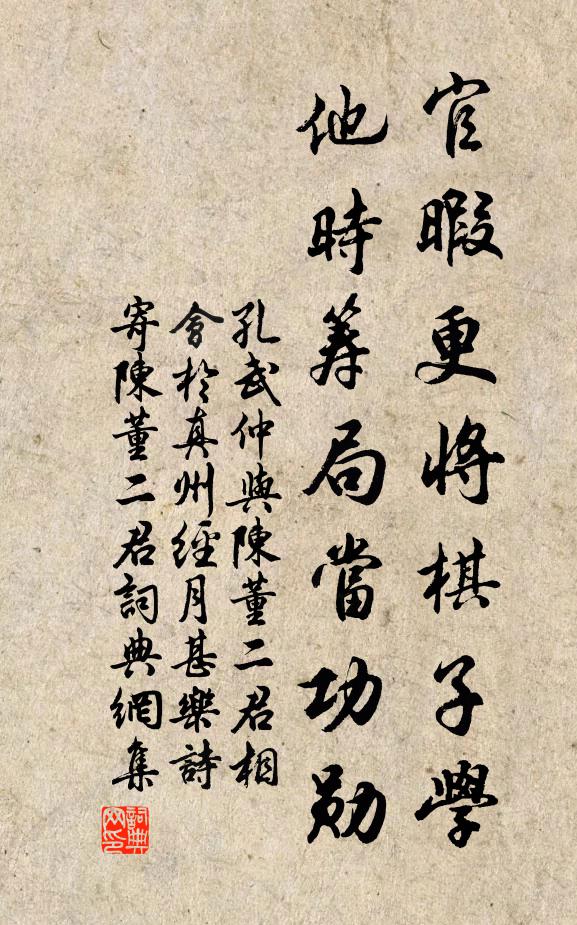 官暇更將棋子學
他時筭局當功勛
孔武仲與陳董二君相
會於真州經月甚樂詩
寄陳董二君詞典網集
詞典
网印